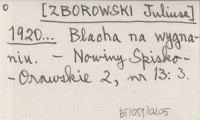 [ZBOROWSKI Juliusz]
1920... Blacha na wygna-
niu. - Nowiny Spisko-
-Orawskie 2, nr 13: 3.